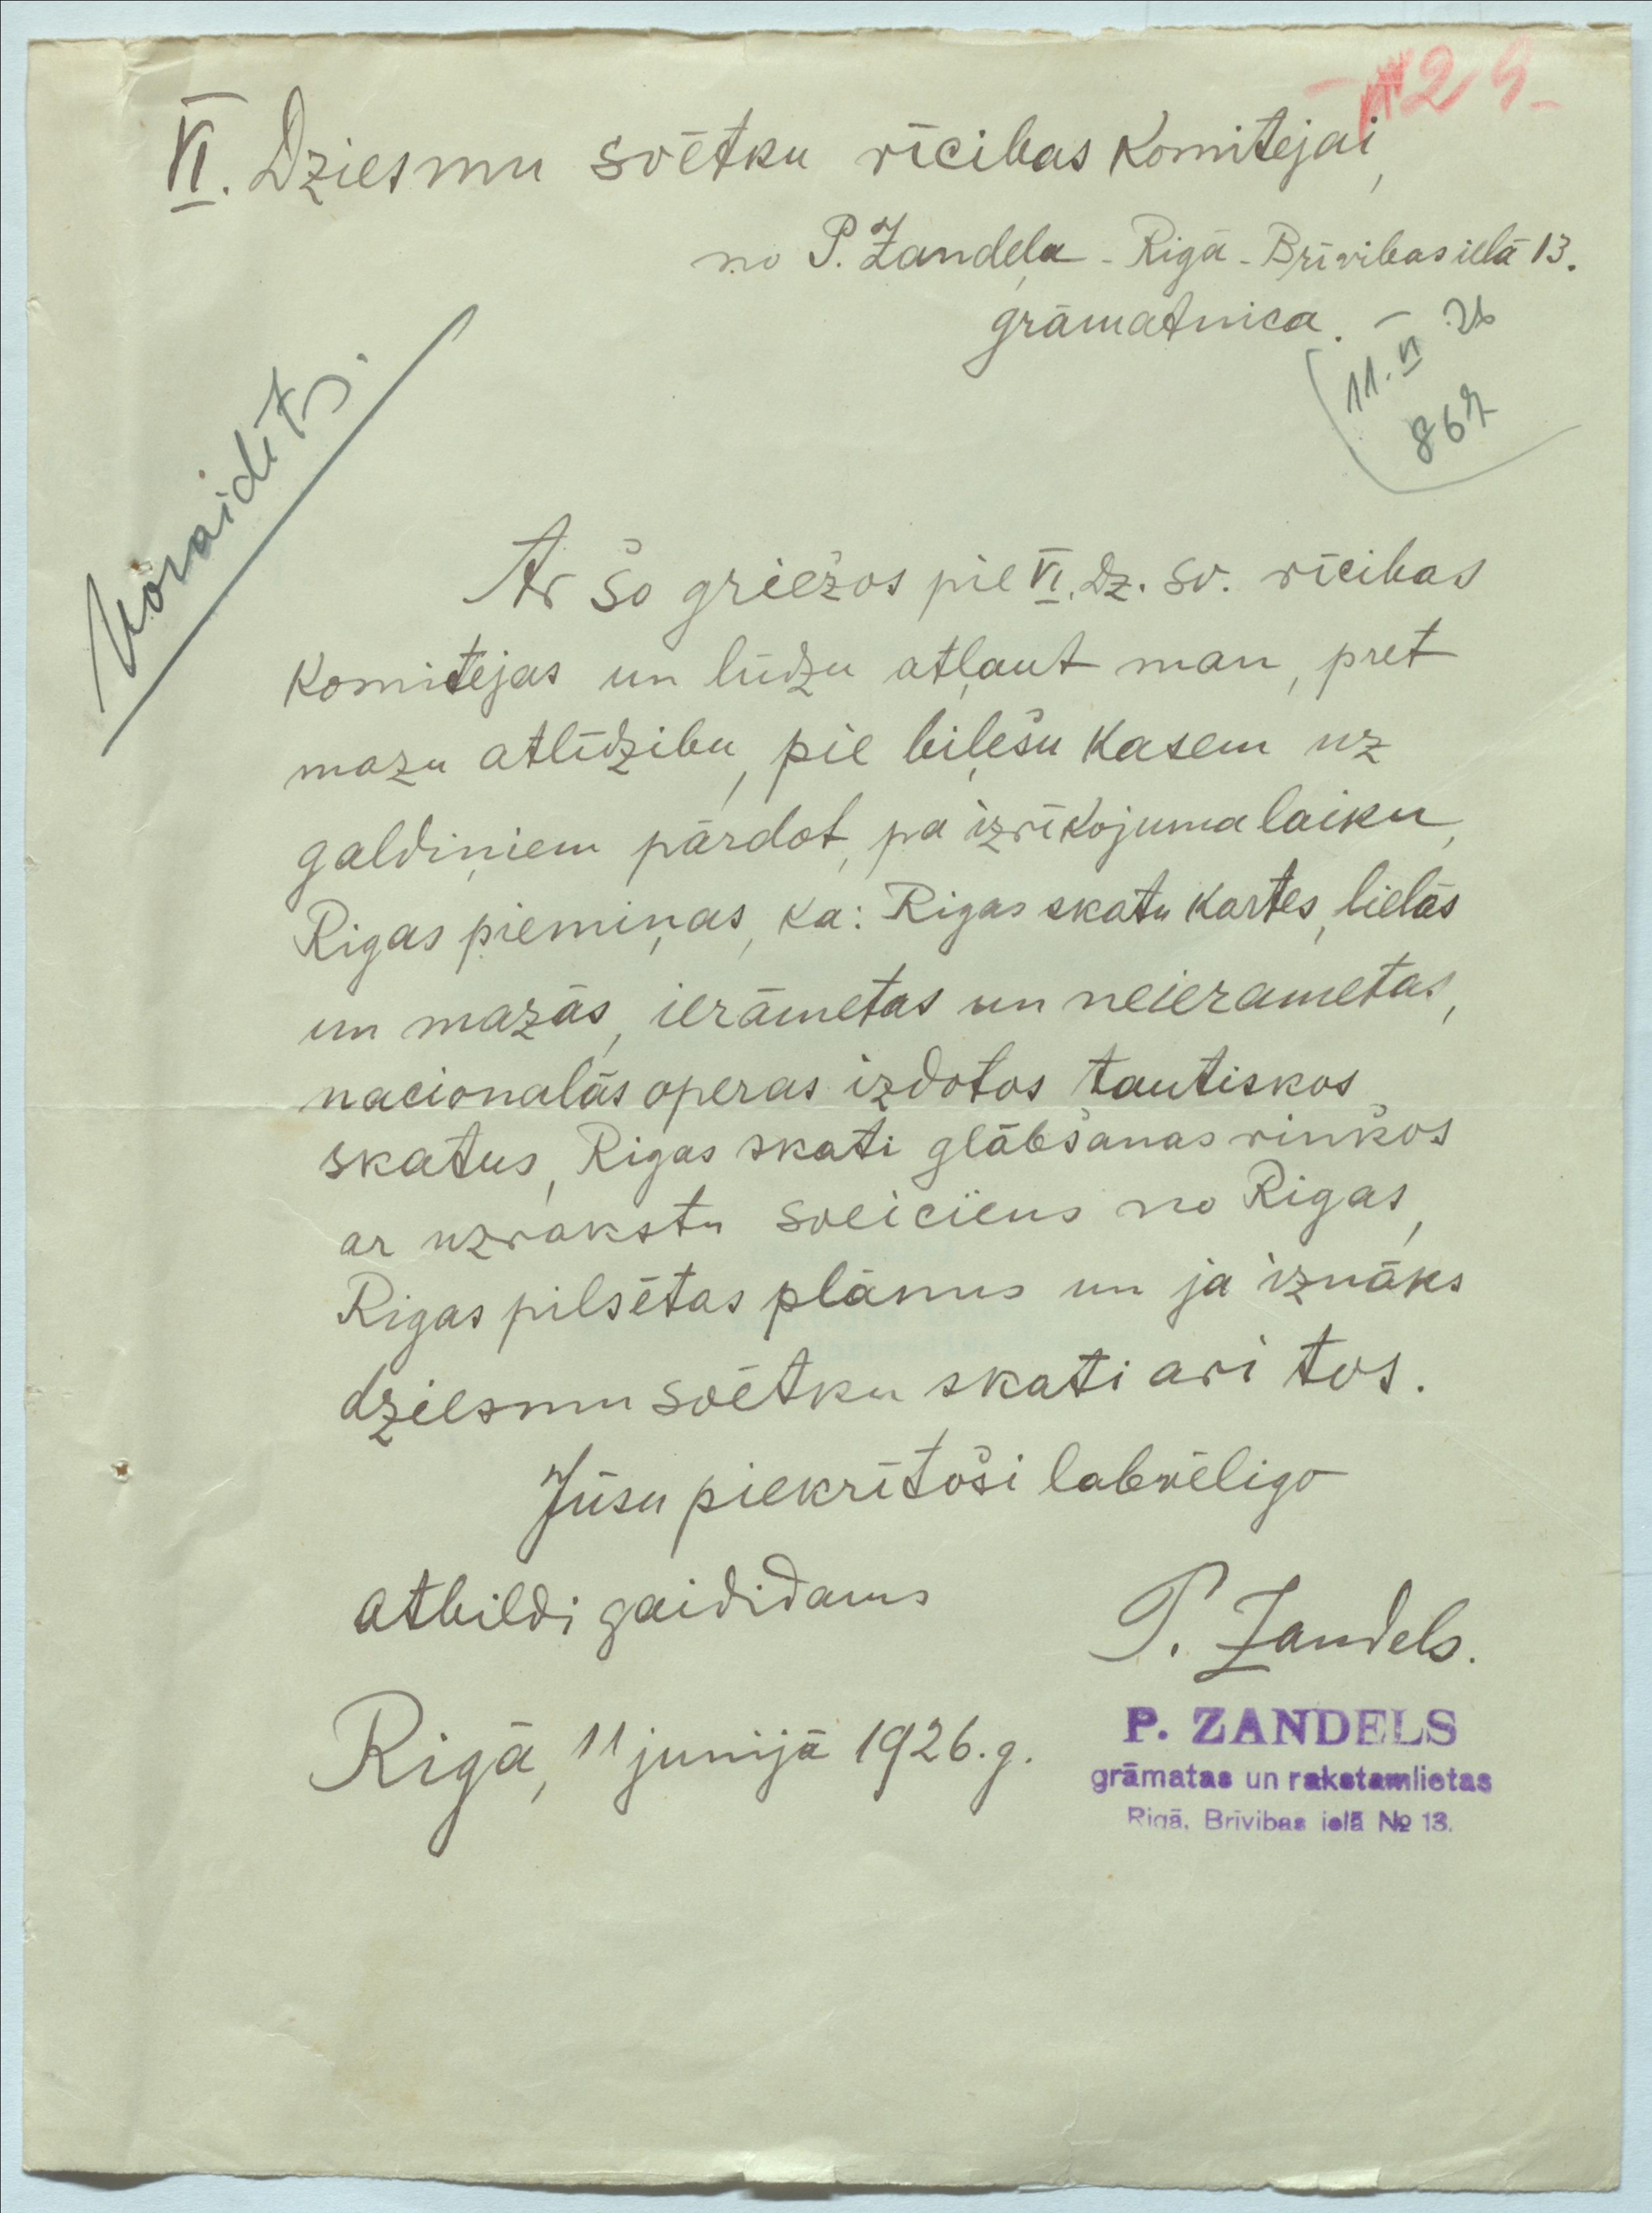 29
VI. Dziesmu svētku rīcibas Komitejai,
no P. Zandeļa - Rigā - Brīvibas ielā 13.
grāmatnica. -
11. VI 26
867
Noraidīts.
Ar šo griežos pie VI. Dz. Sv. rīcibas
Komitējas un lūdzu atļaut man, pret
mazu atlīdzibu, pie biļešu Kasem uz
galdiņiem pārdot, pa izrīkojuma laiku,
Rigas piemiņas, ka: Rigas skatu Kartes, lielās
un mazās, ierāmetas un neierametas,
nacionalās operas izdotos tautiskos
skatus, Rigas skati glābšanas riņkos
ar uzrakstu sveiciens no Rigas,
Rigas pilsētas plānus un ja iznāks
dziesmu svētku skati ari tos.
Jūsu piekrītoši labvēligo
atbildi gaididams
P. Zandels.
Rigā, 11 junijā 1926. g.
P. ZANDELS
grāmatas un rakstamlietas
Rigā, Brīvibas ielā № 13.